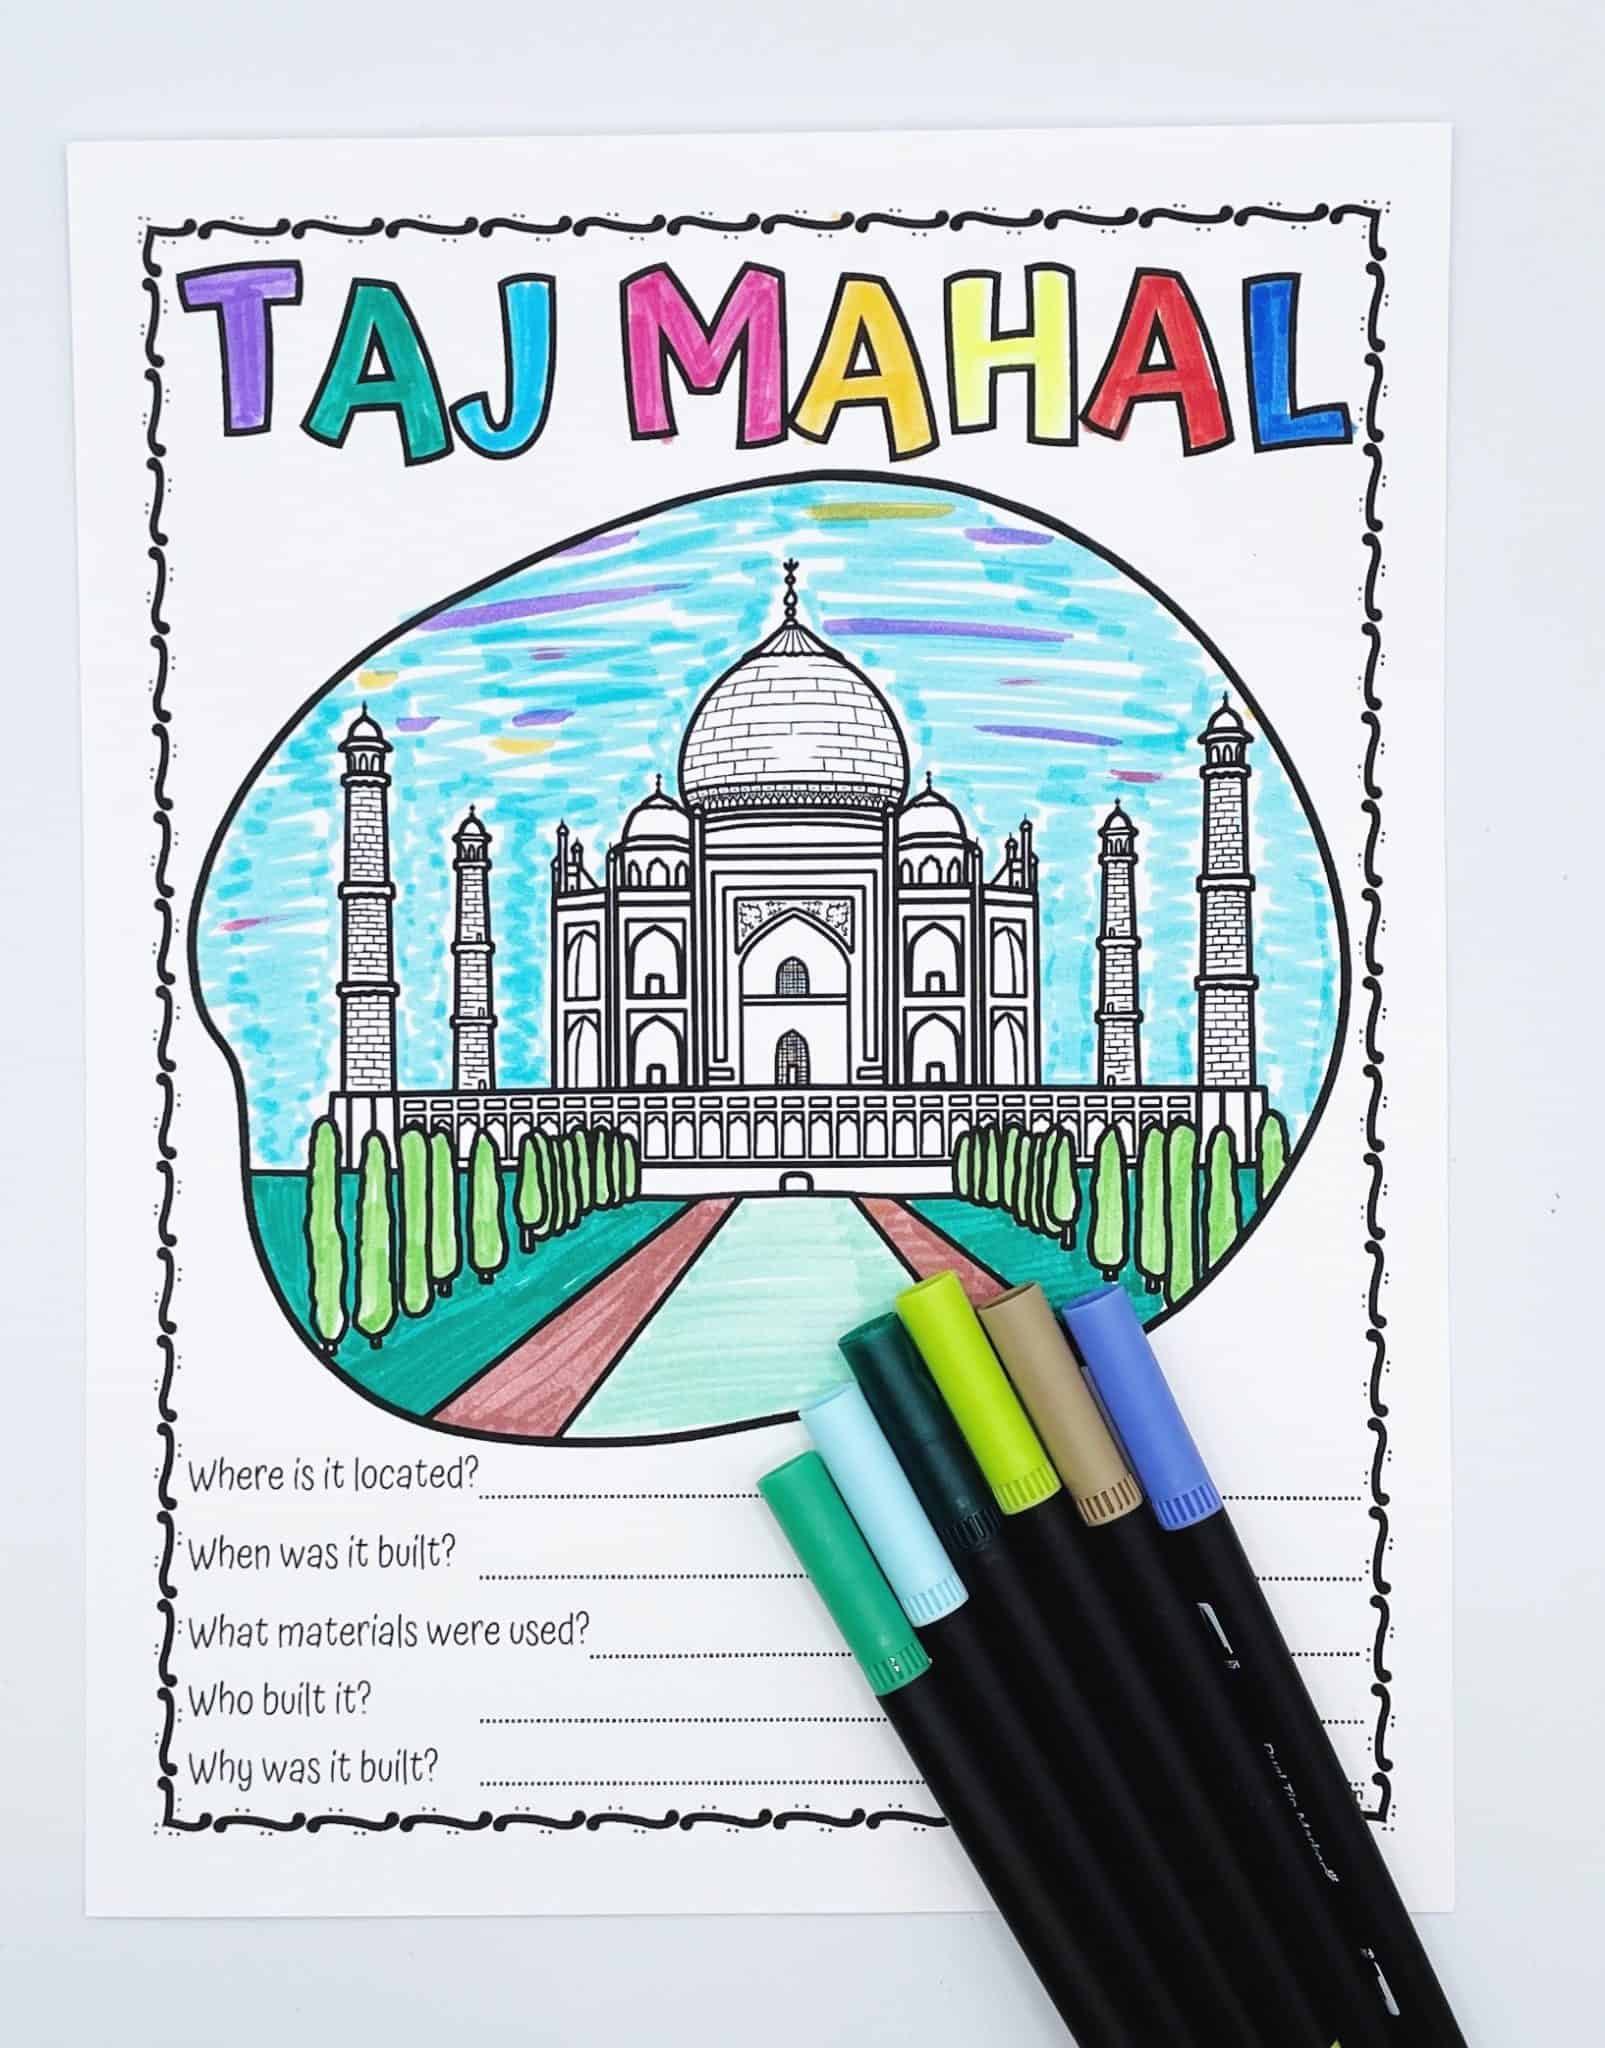 TAJ MAHAL
Where is it located?
When was it built?
What materials were used?
Who built it?
Why was it built?
Dual Tip Markers